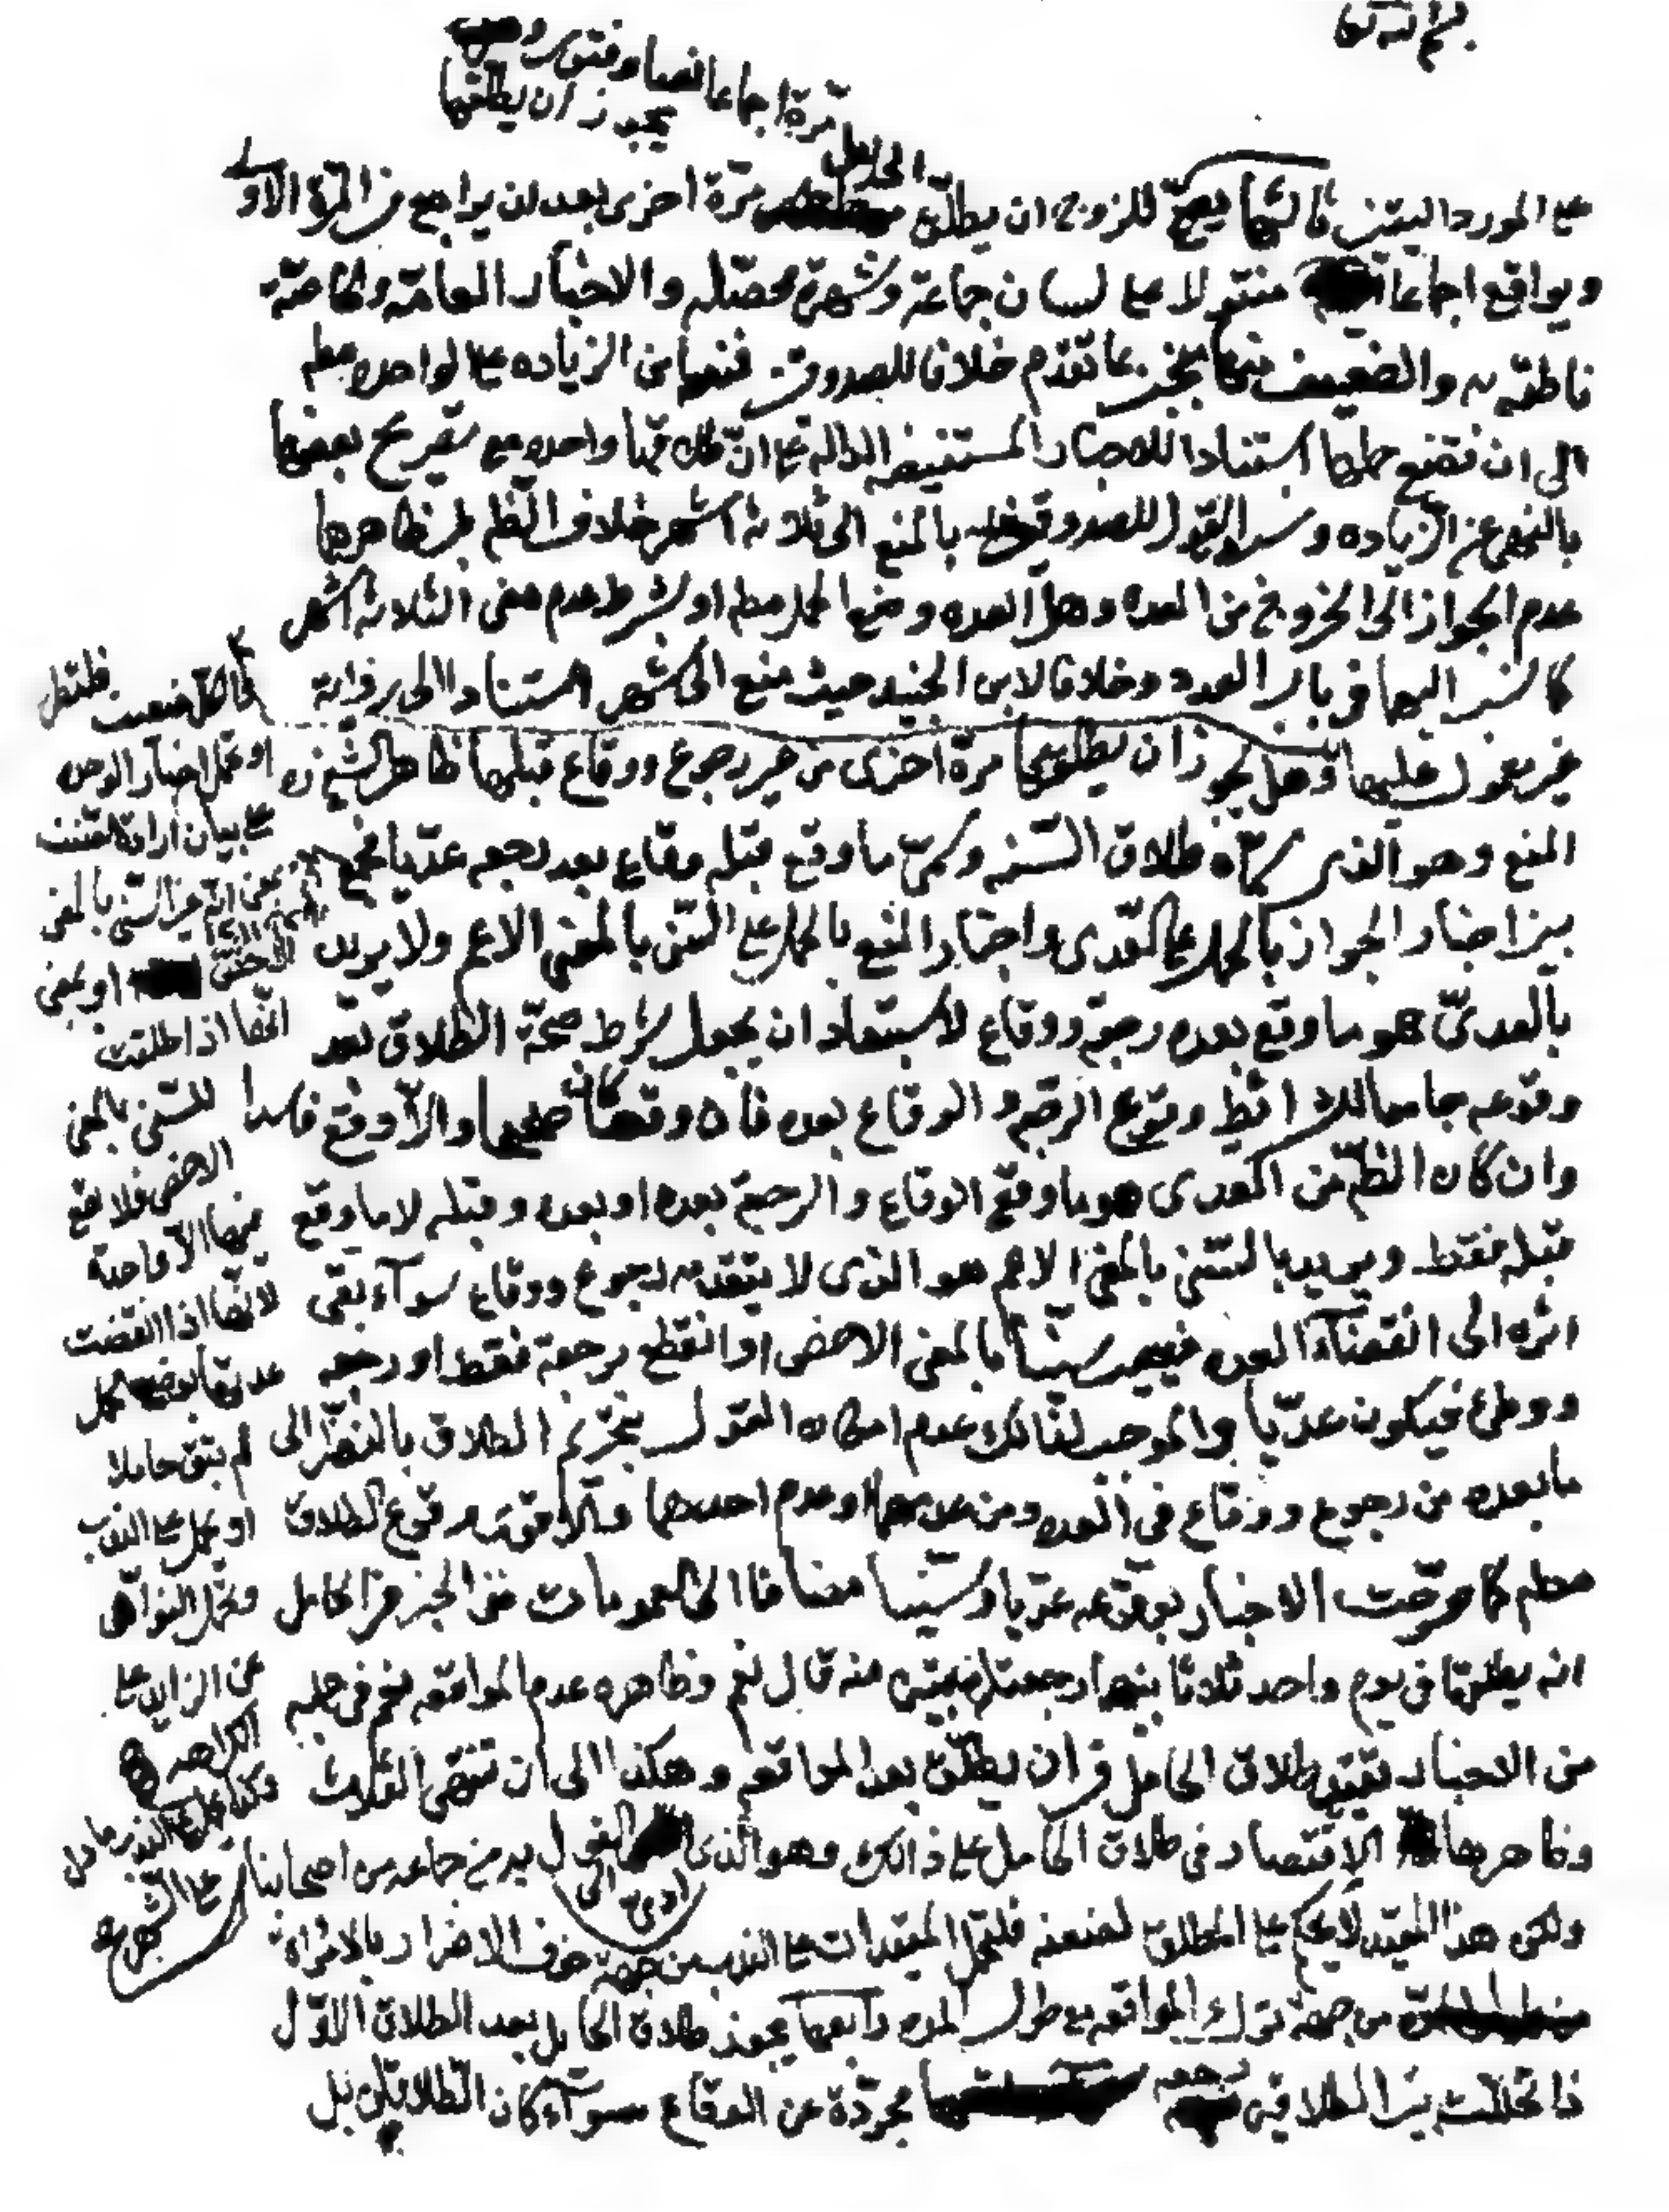 على المورد اليقين ثالثها يصح للزوج ان يطلق الحامل مرة اخرى بعد ان يراجع في المرة الاولى
ويواقع اجماعا منقولا على لسان جماعة وشهرة محصلة والاخبار العامة والخاصة
ناطقة به والضعيف منها منجبر بما تقدم خلافا للصدوق فمنعها من الزيادة على الواحدة مطم
الى ان تضع حملها استنادا للاخبار المستفيضة الدالة على ان طلاقها واحدة مع تصريح بعضها
بالنهي عن الزيادة ونسبة القول للصدوق بالمنع الى ثلاثة اشهر خلاف الظم
عدم الجواز الى الخروج من العدة وهل العدة وضع الحمل مطم او بشرط عدم مضى الثلاثة اشهر
كما نشير اليها في باب العدد وخلافا لابن الجنيد حيث منع الى شهر استنادا الى رواية
غير معول عليها وهل يجوز ان يطلقها مرة اخرى من غير رجوع ووقاع قبلها ظاهر الشيخ ره
المنع وهو الذى سماه طلاق السنة وسمى ما وقع قبله وقاع بعد رجعه عديا فجمع
بين اخبار الجواز بالحمل على العدى واخبار المنع بالحمل على السنى بالمعنى الاعم ولا يريد
بالعدى هو ما وقع بعده رجعة ووقاع لاستبعاد ان يجعل شرط صحة الطلاق بعد
وقوعه جامعا للشرائط وقوع الرجعة والوقاع بعده فان وقعا كان صحيحا والا وقع فاسدا
وان كان الظم من العدى هو ما وقع الوقاع والرجعة بعده او بعده وقبله لا ما وقع
قبله فقط ويريد بالسنى بالمعنى الاعم هو الذى لا يتقدمه رجوع ووقاع سوآء بقى
اثره الى انقضآء العدة فيصير سنيا بالمعنى الاخص او انقطع برجعة فقط او رجعه
ووطئ فيكون عديا والموجب لذلك عدم امكان القول بتحريم الطلاق بالنظر الى
ما بعده من رجوع ووقاع فى العدة ومن عدمهما او عدم احدهما والاقوى وقوع الطلاق
مطم كما صرحت الاخبار بوقوعه عديا وسنيا مضافا الى العمومات ففى الخبر في الحامل
انه يطلقها فى يوم واحد ثلاثا بينهما رجعة تبين منه قال نعم وظاهره عدم المواقعة نعم فى جملة
من الاخبار تقييد طلاق الحامل في ان يطلق بعد المواقعه وهكذا الى ان تنتهى الثلاث
وظاهرها الاقتصار فى طلاق الحامل على ذالك وهو الذى ادى الى القول به من جماعه من اصحابنا
ولكن هذا المقيد لا يحكم على المطلق لضعفه فلتحمل المقيدات على الندب من جهة خوف الاضرار بالامراة
من جهة ترك المواقعه مع طول المدة رابعها يجوز طلاق الحامل بعد الطلاق الاول
اذا تخللت بين الطلاقين رجعه مجردة عن الوقاع سوآء كان الطلاق قبل
مرة اجماعا نصا وفتوى
يجوز ان يطلقها
فلتطرح
او تحمل اخبار الوحدة
على بيان ارادة
السنى بالمعنى
او بمعنى
انها اذا طلقت
للسنى بالمعنى
الاخص فلا يقع
منها الا واحدة
لانها اذا انقضت
عدتها بوضع الحمل
لم تبق حاملا
او تحمل على الندب
وتحمل النواهى
عن الزايد على
الكراهه